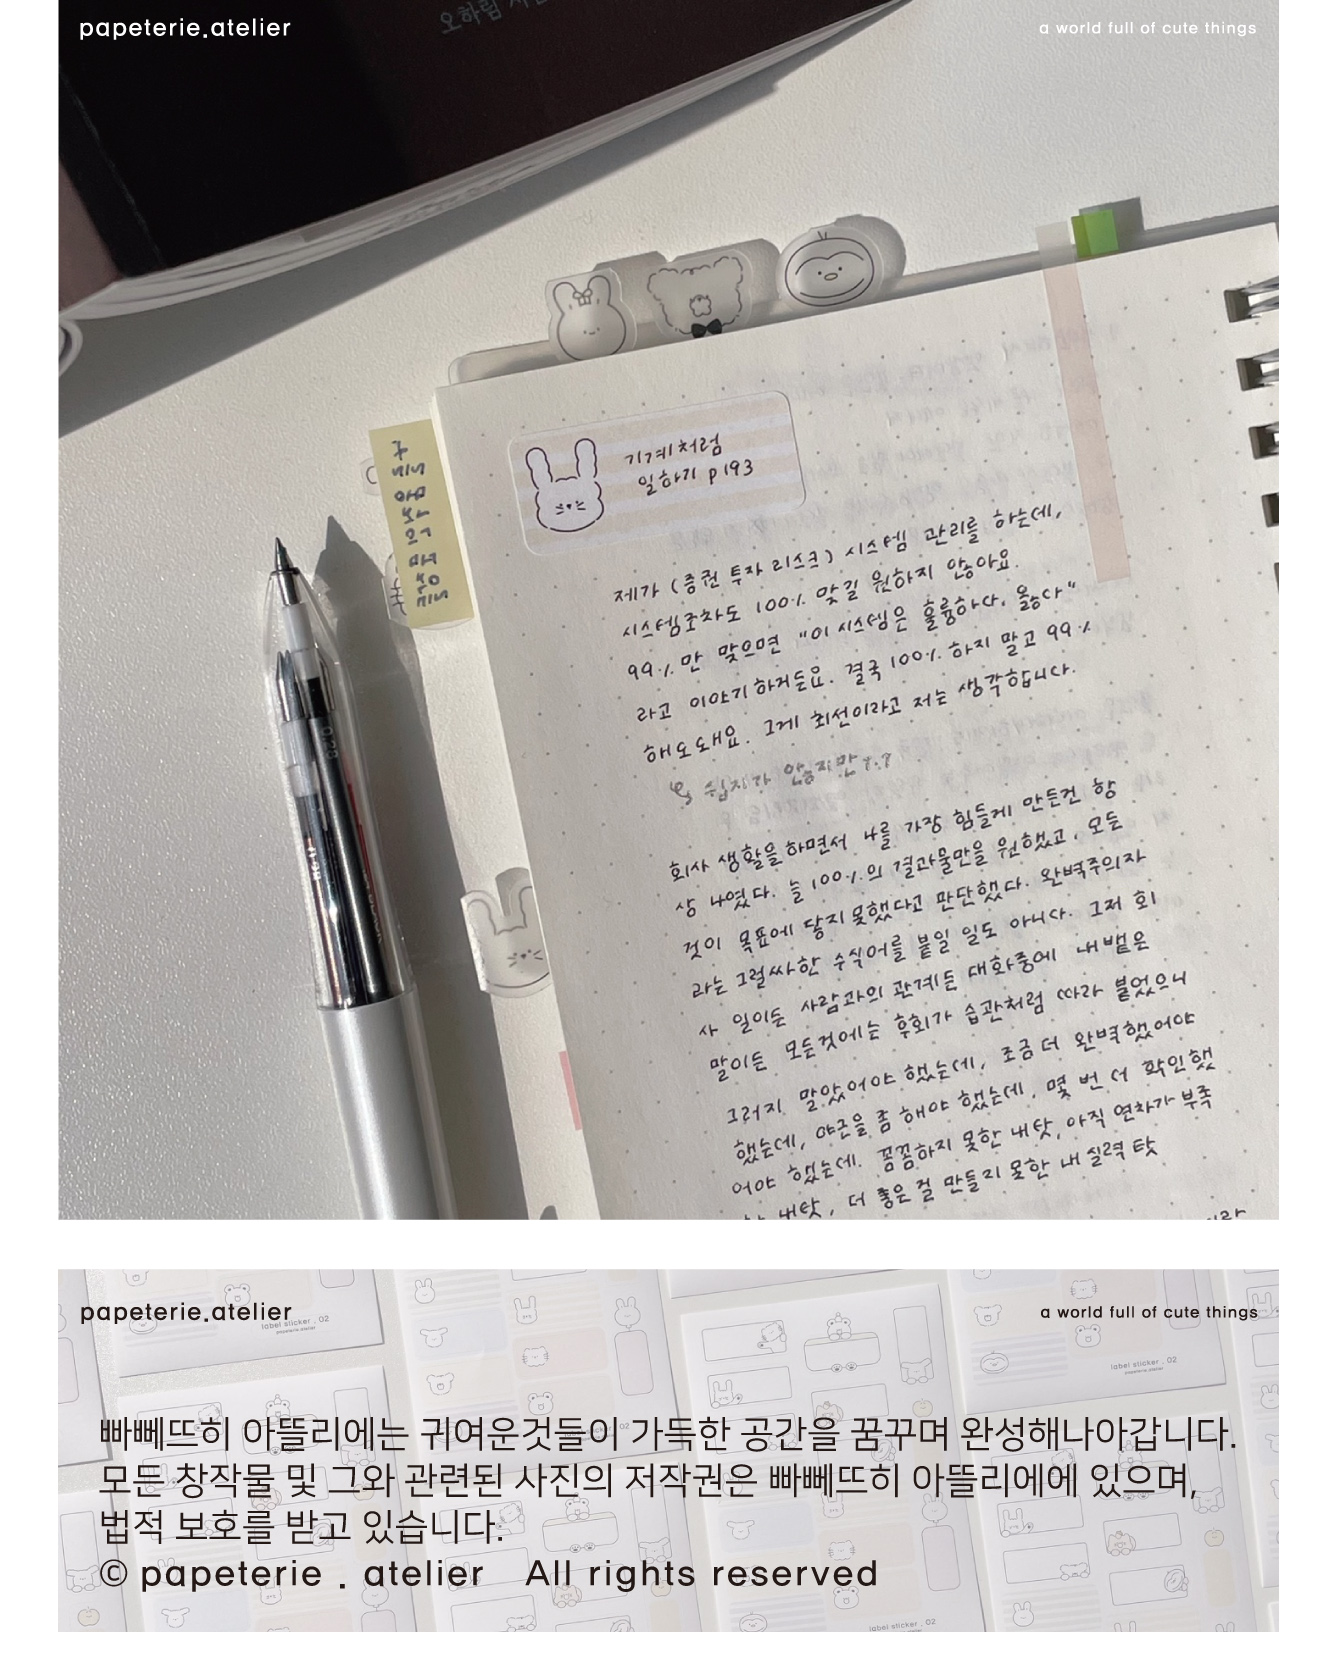 papeterie.atelier
a world full of cute things
오하림
기계처럼
일하기 p193
제가 (증권 투자 리스크) 시스템 관리를 하는데,
시스템조차도 100% 맞길 원하지 않아요.
99%만 맞으면 "이 시스템은 훌륭하다. 옳다"
라고 이야기하거든요. 결국 100% 하지 말고 99%
해오도돼요. 그게 최선이라고 저는 생각합니다.
쉽지가 않지만 ㅜ.ㅜ
회사 생활을하면서 나를 가장 힘들게 만든건 항
상 나였다. 늘 100%의 결과물만을 원했고, 모든
것이 목표에 닿지 못했다고 판단했다. 완벽주의자
라는 그럴싸한 수식어를 붙일 일도 아니다. 그저 회
사 일이든 사람과의 관계든 대화중에 내뱉은
말이든 모든것에는 후회가 습관처럼 따라 붙었으니
그러지 말았어야 했는데, 조금 더 완벽했어야
했는데, 야근을 좀 해야 했는데, 몇 번 더 확인했
어야 했는데. 꼼꼼하지 못한 내탓, 아직 연차가 부족
내탓, 더 좋은걸 만들지 못한 내 실력 탓
papeterie.atelier
a world full of cute things
label sticker . 02
papeterie.atelier
label sticker . 02
papeterie.atelier
빠뻬뜨히 아뜰리에는 귀여운것들이 가득한 공간을 꿈꾸며 완성해나아갑니다.
모든 창작물 및 그와 관련된 사진의 저작권은 빠뻬뜨히 아뜰리에에 있으며,
법적 보호를 받고 있습니다.
© papeterie . atelier All rights reserved
label sticker . 02